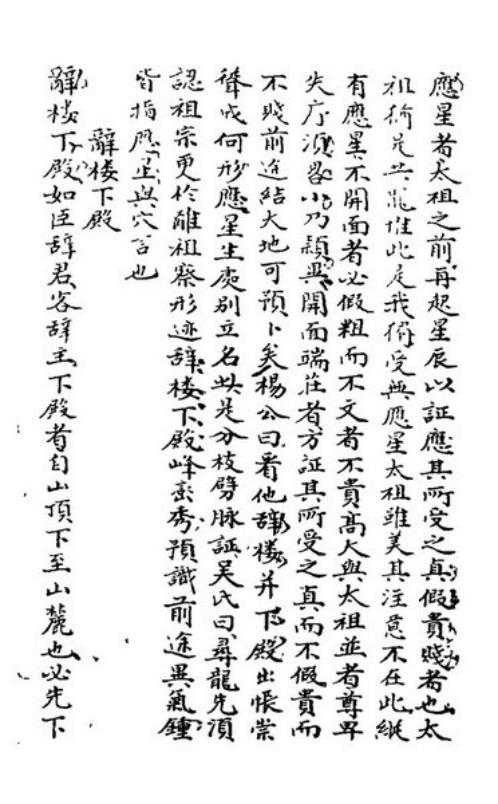 應星者太祖之前再起星辰以証應其所受之真假貴賤者也太
祖猶是共龍惟此是我獨受無應星太祖雖美其注意不在此縱
有應星不開面者必假粗而不文者不貴高大與太祖並者尊卑
失序須畧小乃穎異開面端莊者方証其所受之真而不假貴而
不賤前途結大地可預卜矣楊公曰看他辞樓并下殿出帳崇
聳成何形應星生處別立名此是分枝劈脉証吳氏曰尋龍先須
認祖宗更於離祖察形迹辞樓下殿峰巒秀預識前途異氣鍾
皆指應星與穴言也
辭楼下殿
辭楼下殿如臣辞君客辞主下殿者自山頂下至山麓也必先下